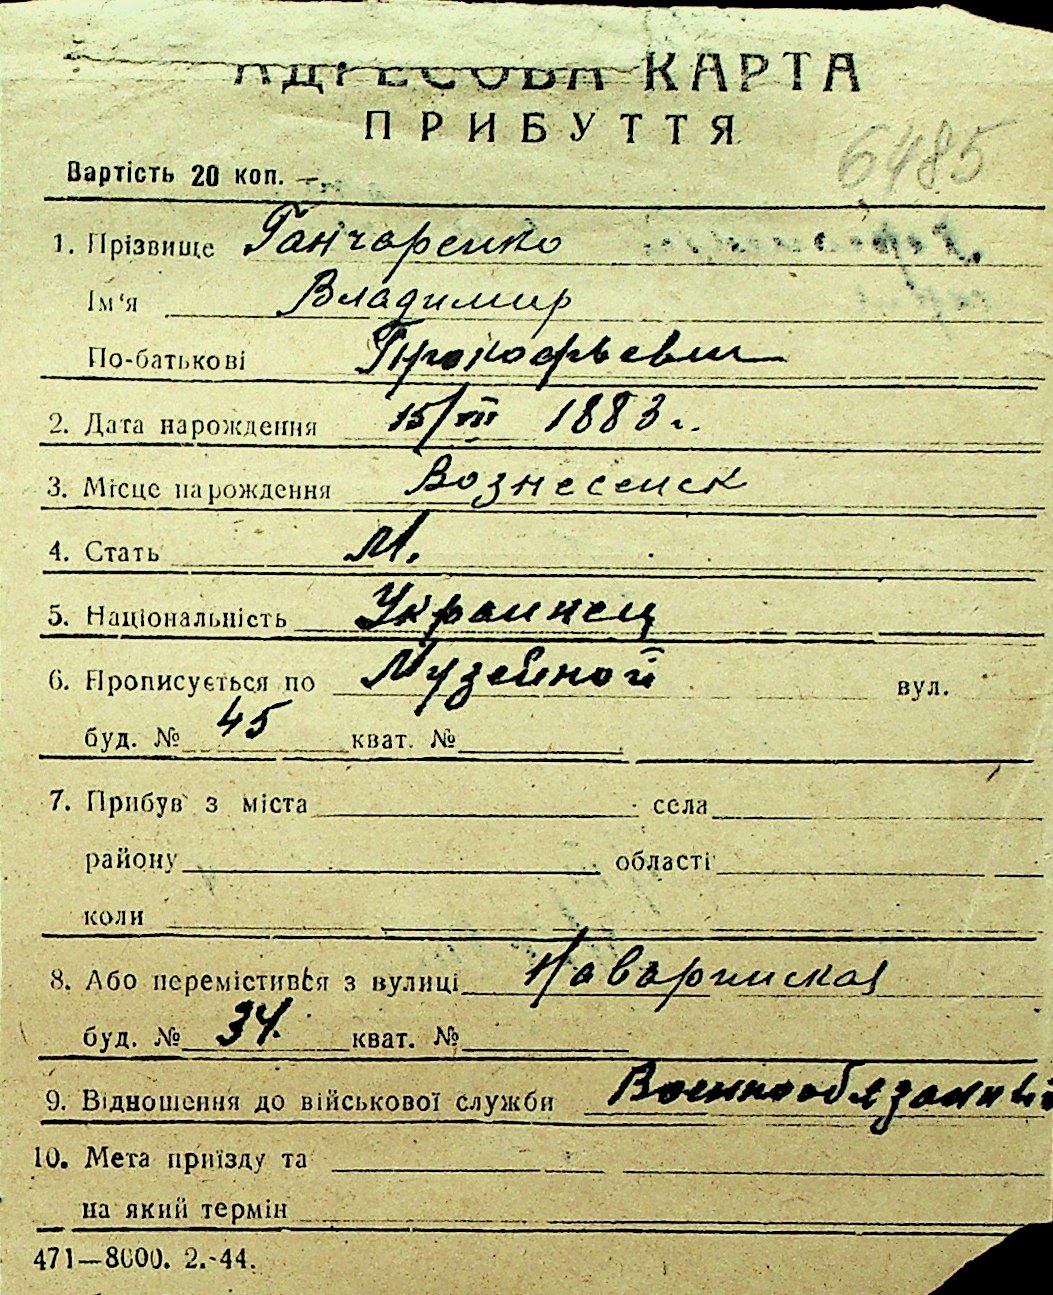 АДРЕСОВА КАРТА
ПРИБУТТЯ
6485
Вартість 20 коп.
1. Прізвище Ганчаренко
Ім'я Владимир
По-батькові Прокофьевич
2. Дата народження 15/VII 1883 г.
3. Місце народження Вознесенск
4. Стать М.
5. Національність Украинец
6. Прописується по Музейной вул.
буд. № 45 кват. №
7. Прибув з міста села
району області
коли
8. Або перемістився з вулиці Наваринская
буд. № 34. кват. №
9. Відношення до військової служби Военнообязанный
10. Мета приїзду та
на який термін
471—8000. 2.-44.